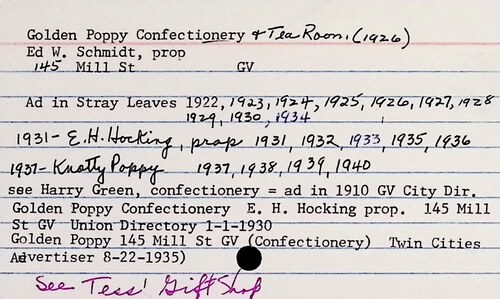 Golden Poppy Confectionery & Tea Room. (1926)
Ed W. Schmidt, prop
145 Mill St GV
Ad in Stray Leaves 1922, 1923, 1924, 1925, 1926, 1927, 1928
1929, 1930, 1934
1931- E. H. Hocking, prop 1931, 1932, 1933, 1935, 1936
1937- Knotty Poppy 1937, 1938, 1939, 1940
see Harry Green, confectionery = ad in 1910 GV City Dir.
Golden Poppy Confectionery E. H. Hocking prop. 145 Mill
St GV Union Directory 1-1-1930
Golden Poppy 145 Mill St GV (Confectionery) Twin Cities
Advertiser 8-22-1935)
See Tess' Gift Shop